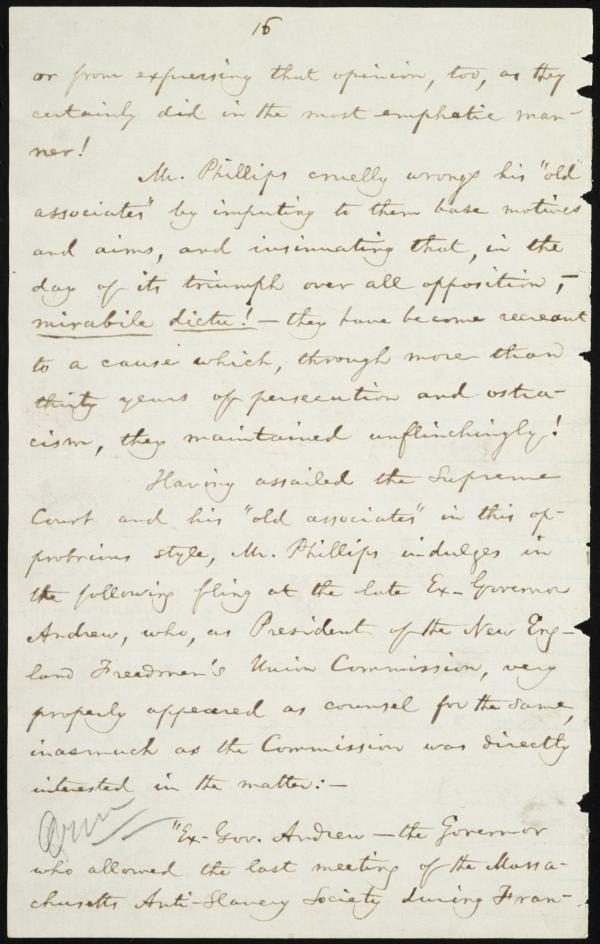 16
or from expressing that opinion, too, as they
certainly did in the most emphatic man-
ner!
Mr. Phillips cruelly wrongs his "old
associates" by imputing to them base motives
and aims, and insinuating that, in the
day of its triumph over all opposition, –
mirabile dictu! – they have become recreant
to a cause which, through more than
thirty years of persecution and ostra-
cism, they maintained unflinchingly!
Having assailed the Supreme
Court and his "old associates" in this op-
probrious style, Mr. Phillips indulges in
the following fling at the late Ex-Governor
Andrew, who, as President of the New Eng-
land Freedmen's Union Commission, very
properly appeared as counsel for the same,
inasmuch as the Commission was directly
interested in the matter: –
"Ex-Gov. Andrew – the Governor
who allowed the last meeting of the Massa-
chusetts Anti-Slavery Society during Fran-